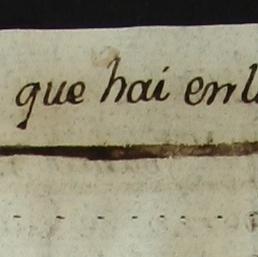 que hai en l